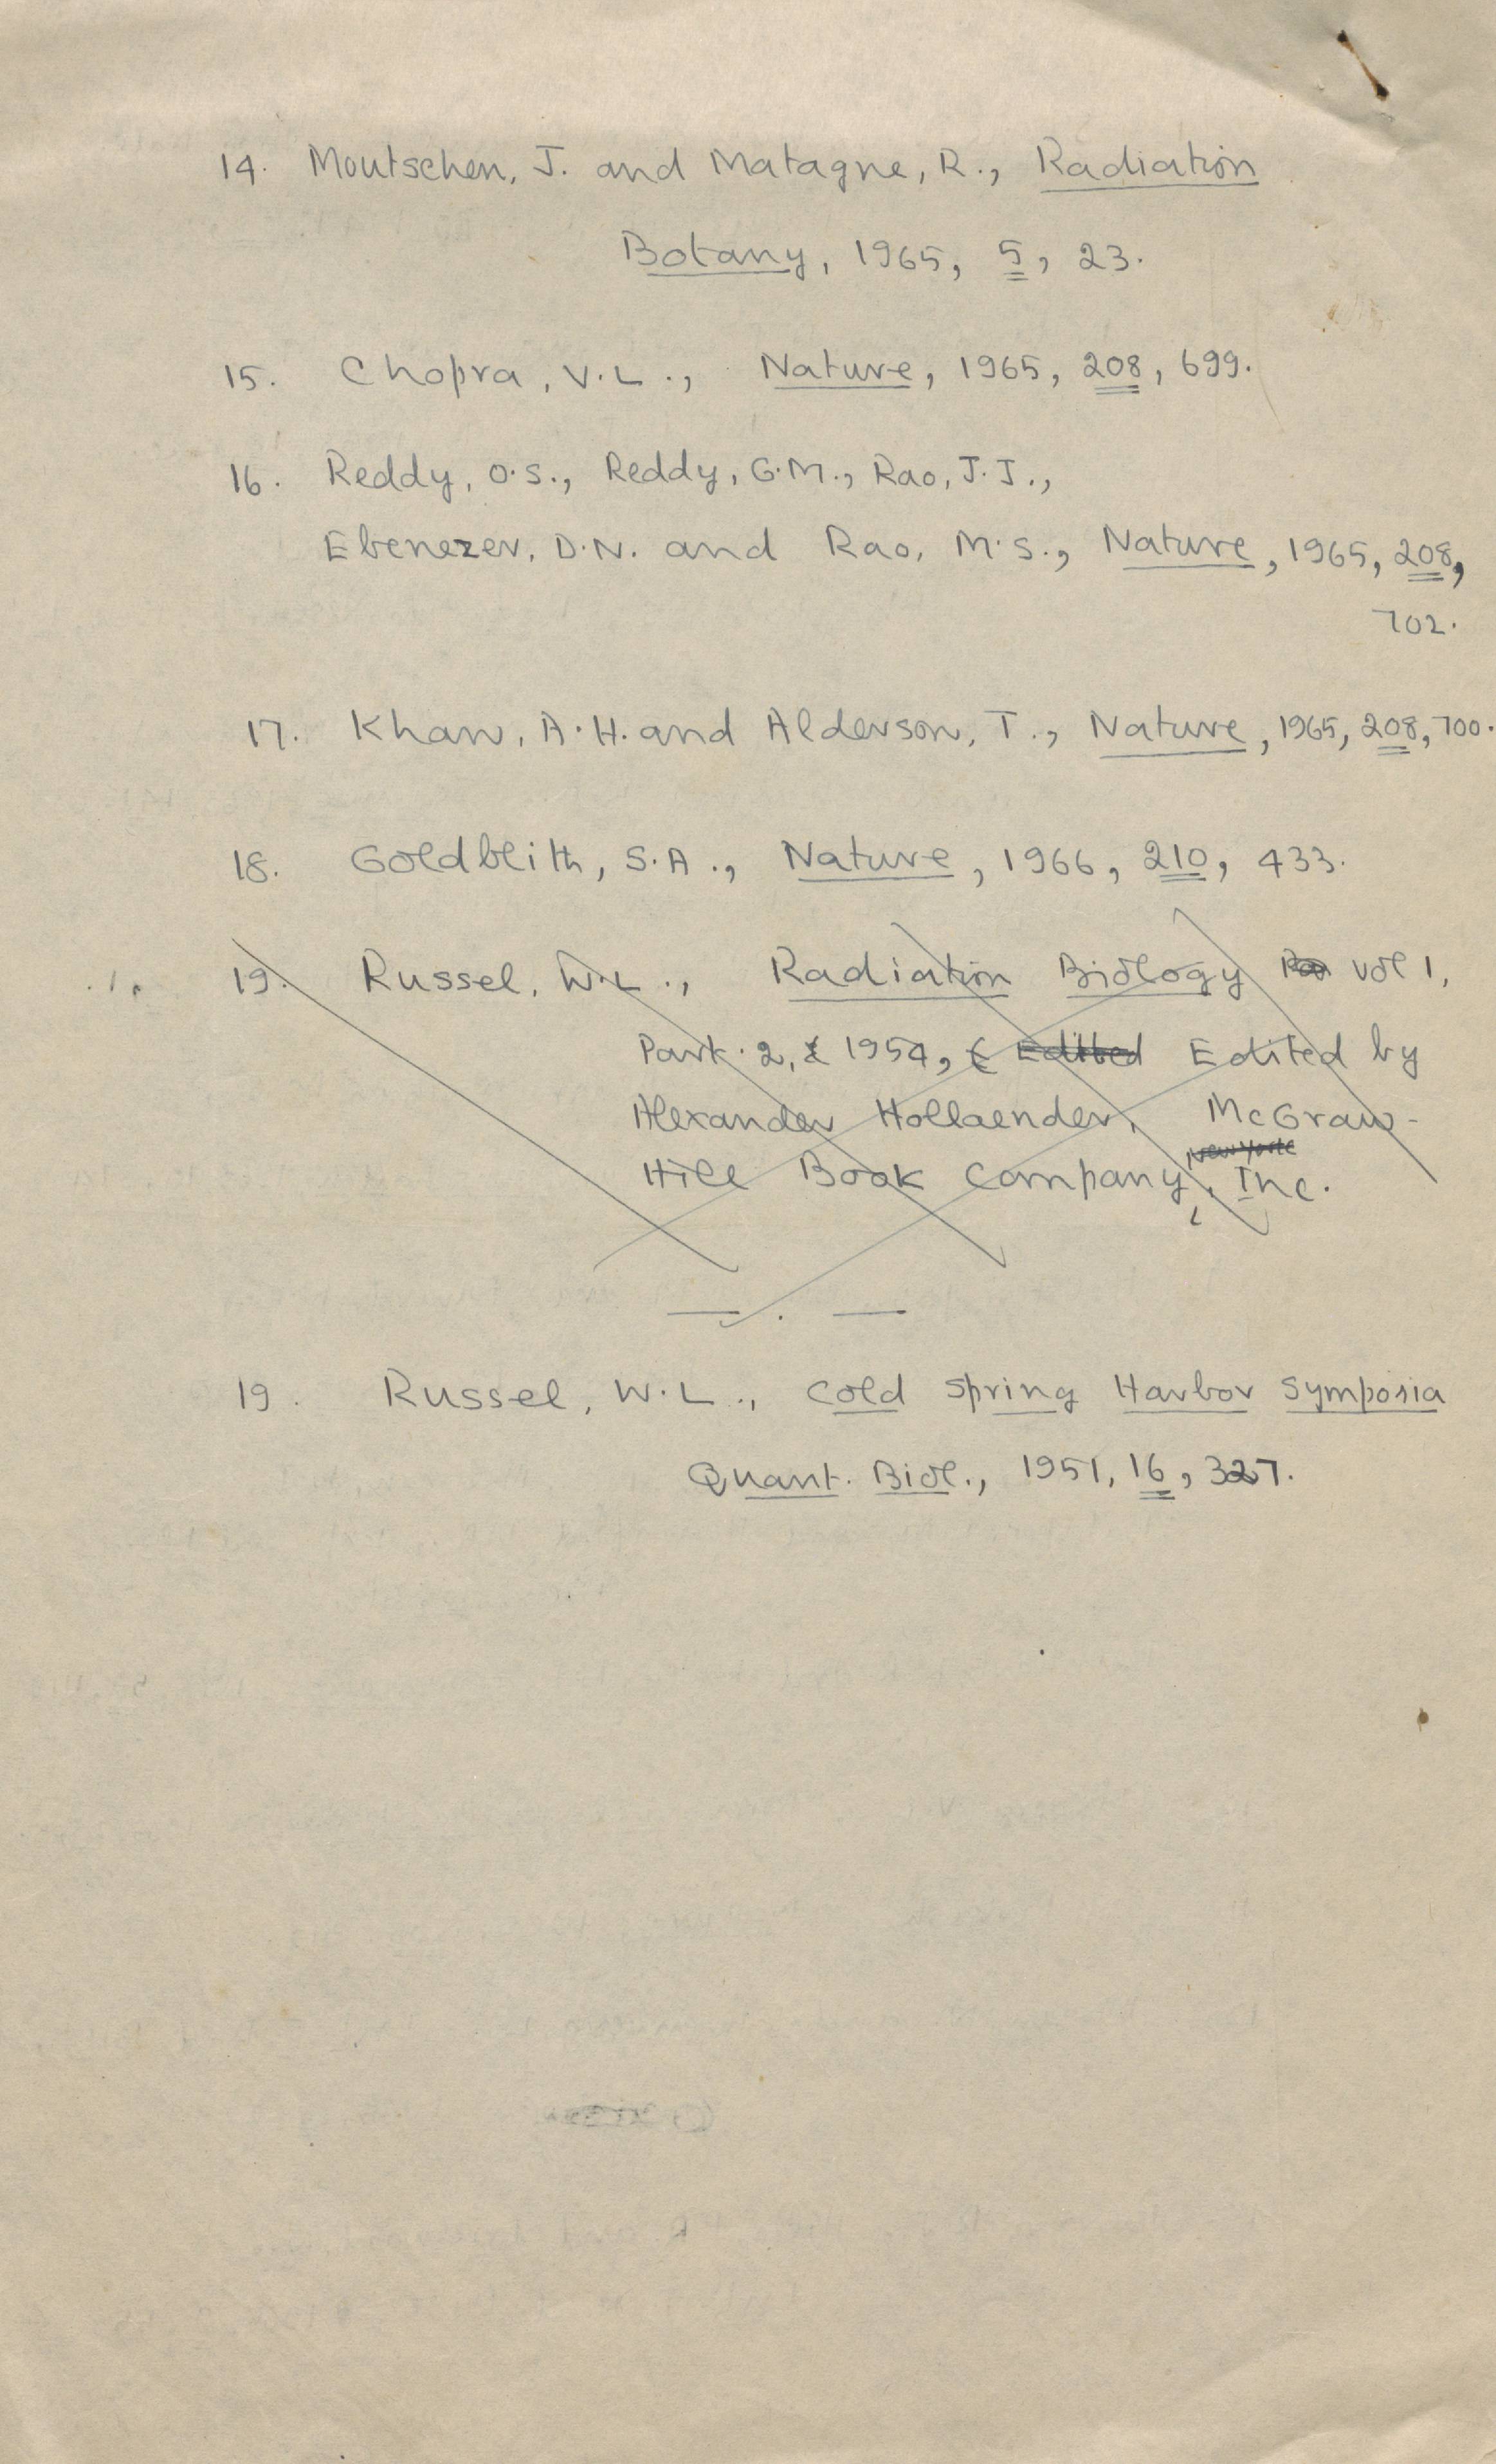 14. Moutschen, J. and Matagne, R., Radiation
Botany, 1965, 5, 23.
15. Chopra, V.L., Nature, 1965, 208, 699.
16. Reddy, O.S., Reddy, G.M., Rao, J.J.,
Ebenezer, D.N. and Rao, M.S., Nature, 1965, 208,
702.
17. Khan, A.H. and Alderson, T., Nature, 1965, 208, 700.
18. Goldblith, S.A., Nature, 1966, 210, 433.
19. Russel, W.L., Radiation Biology Vol 1,
Part. 2, 1954, ( Edited Edited by
Alexander Hollaender, McGraw-
New York
Hill Book Company, Inc.
— . —
19. Russel, W.L., Cold Spring Harbor Symposia
Quant. Biol., 1951, 16, 327.